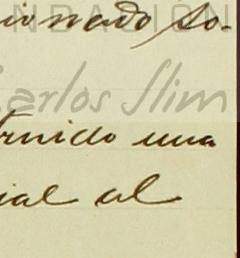 FUNDACIÓN
ionado so-
Carlos Slim
truido una
ial al